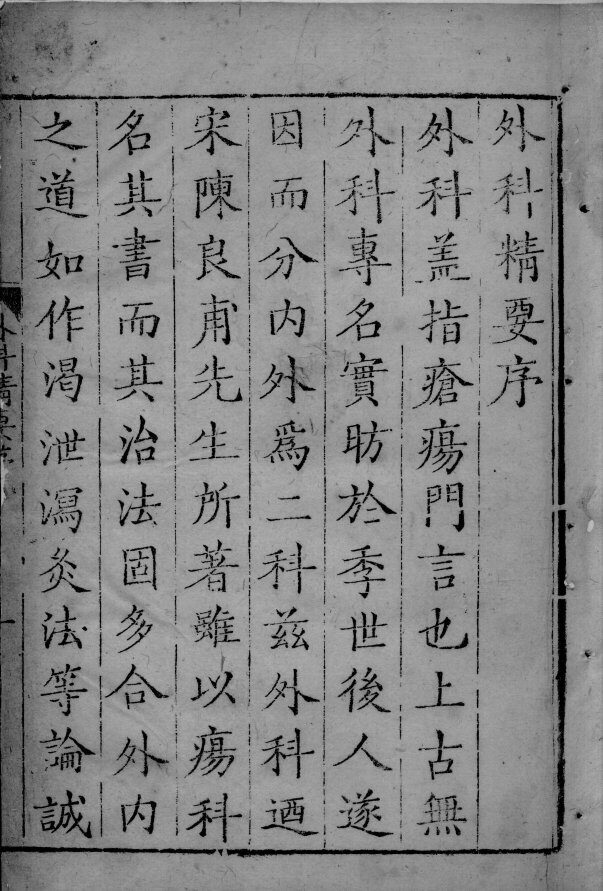 外科精要序
外科盖指瘡瘍門言也上古無
外科專名實昉於季世後人遂
因而分内外爲二科兹外科迺
宋陳良甫先生所著雖以瘍科
名其書而其治法固多合外内
之道如作渴泄瀉灸法等論誠
外科精要序
一